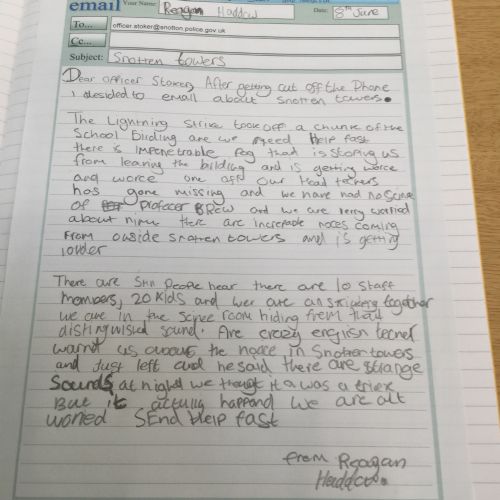 email Your Name: Reagan Haddow Date: 8th June
To... officer.stoker@snotton.police.gov.uk
Cc...
Subject: Snotten towers
Dear officer Stoker, After getting cut off the Phone
i desided to email about snotten towers.
The Lightning strike took off a chunk of the
School Bilding are we need Help fast
there is impenetrable fog that is stoping us
from leaving the bilding and is getting worce
and worce one of our Head teachers
has gone missing and we have had no Scine
of Profacer Brew and we are very worried
about him there are increable noces coming
from ouside snotten towers and is getting
louder
There are Snn People hear there are 10 Staff
members, 20 kids and wer are all sticking together
we are in the scice room hiding from that
distinguished sound. Are crezy english techer
warnd us about the noace in Snotten towers
and Just left and he said there are strange
Sounds at night we thought it was a trick
But it actuly happand we are all
woried SEnd Help fast
from Reagan
Haddow.